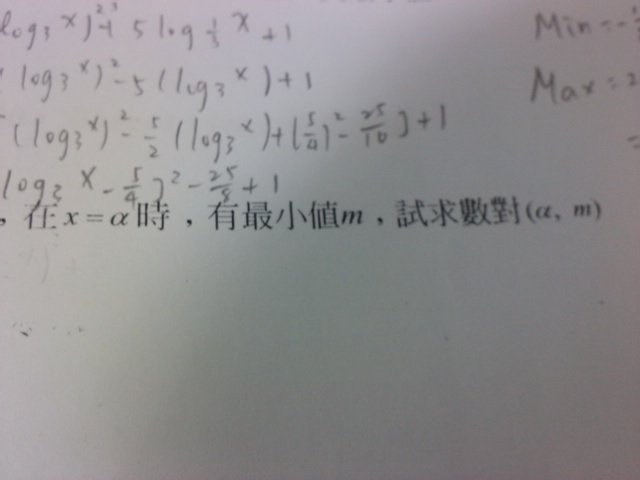 log₃x)² + 5 log⅓ x + 1 Min = -
(log₃x)² - 5 (log₃x) + 1 Max = 2
(log₃x)² - 5/2 (log₃x) + (5/4)² - 25/16 ] + 1 =
log₃x - 5/4 )² - 25/8 + 1
,在 x = α 時,有最小值m,試求數對(α, m)